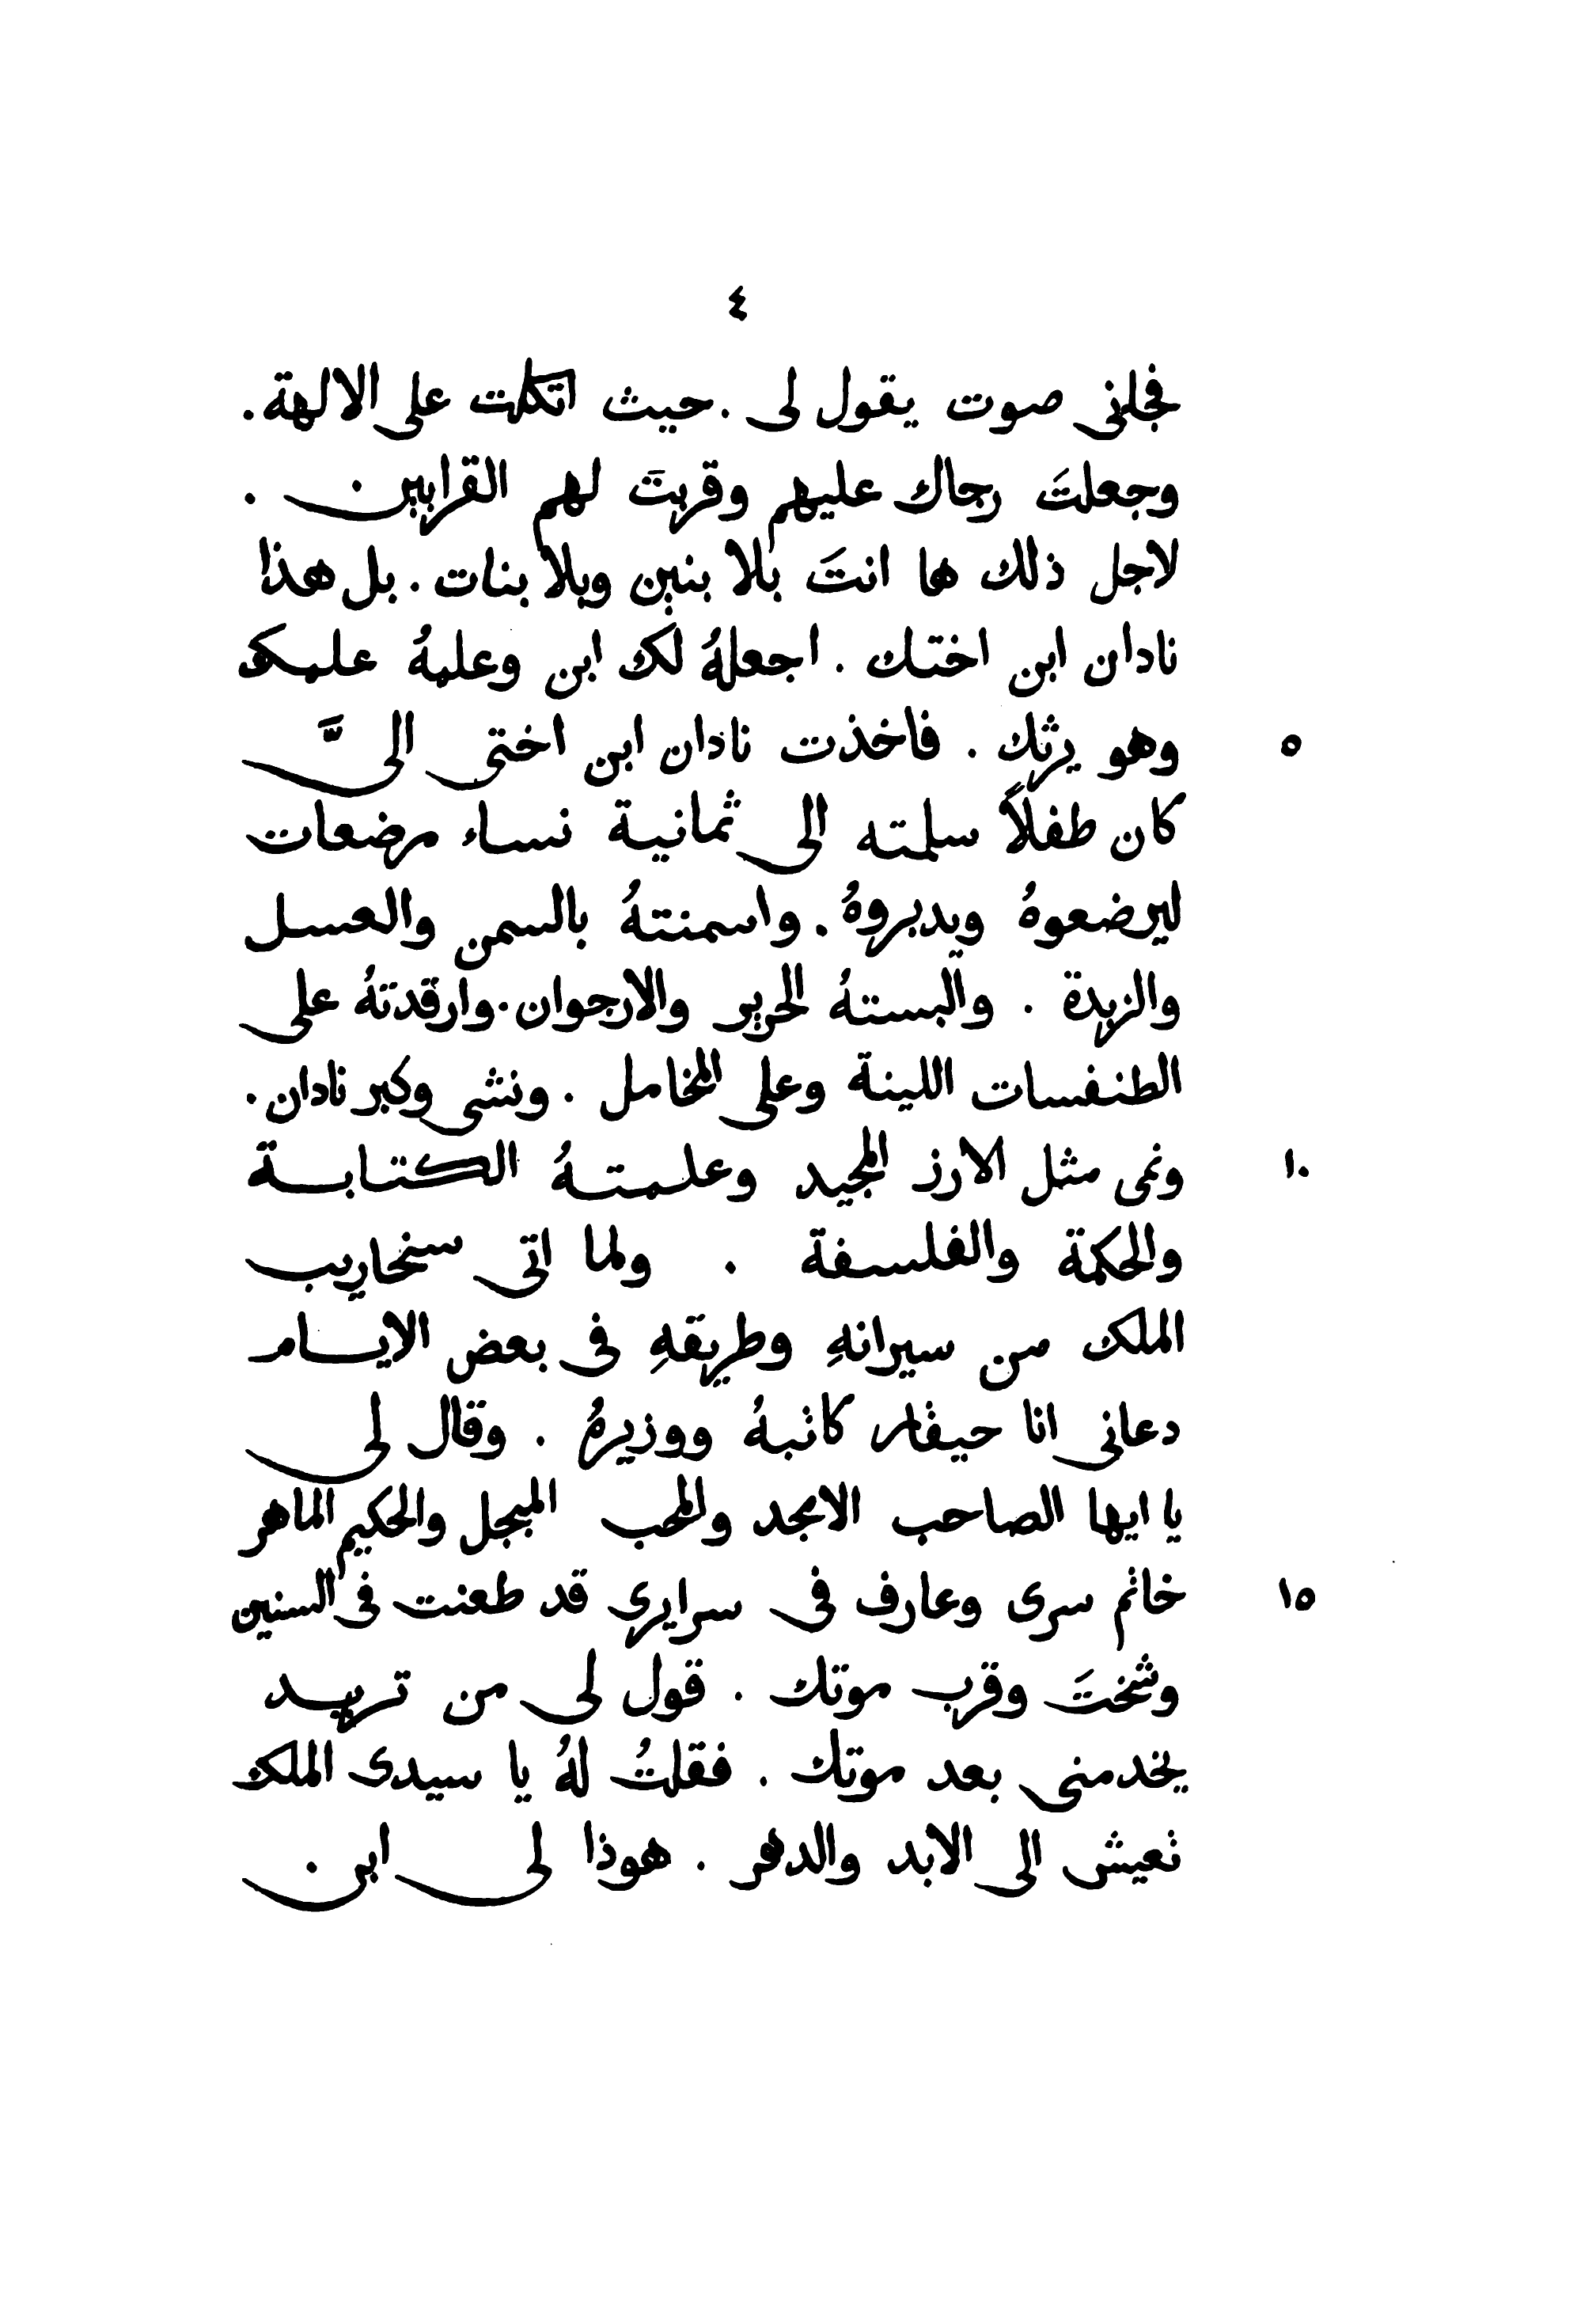 ٤
فجاني صوت يقول لى . حيث اتكلت على الالهة .
وجعلتَ رجاك عليهم وقربتَ لهم القرابين .
لاجل ذلك ها انتَ بلا بنين وبلا بنات . بل هذا
نادان ابن اختك . اجعلهُ لك ابن وعلمهُ علمك
٥ وهو يرثك . فاخذت نادان ابن اختى الىَّ
كان طفلاً سلمته الى ثمانية نساء مرضعات
ليرضعوهُ ويدبروهُ . واسمنتهُ بالسمن والعسل
والزبدة . والبستهُ الحرير والارجوان . وارقدتهُ على
الطنفسات اللينة وعلى المخامل . ونشى وكبر نادان .
١٠ ونمى مثل الارز المجيد وعلمتهُ الكتابة
والحكمة والفلسفة . ولما اتى سنحاريب
الملك من سيرانهِ وطريقهِ فى بعض الايام
دعانى انا حيقار كاتبهُ ووزيرهُ . وقال لى
يا ايها الصاحب الامجد والمحب المبجل والحكيم الماهر
١٥ خاتم سرى وعارف فى سرايرى قد طعنت فى السنين
وشختَ وقرب موتك . قول لى من تريد
يخدمنى بعد موتك . فقلتُ لهُ يا سيدى الملك
تعيش الى الابد والدهر . هوذا لى ابن .